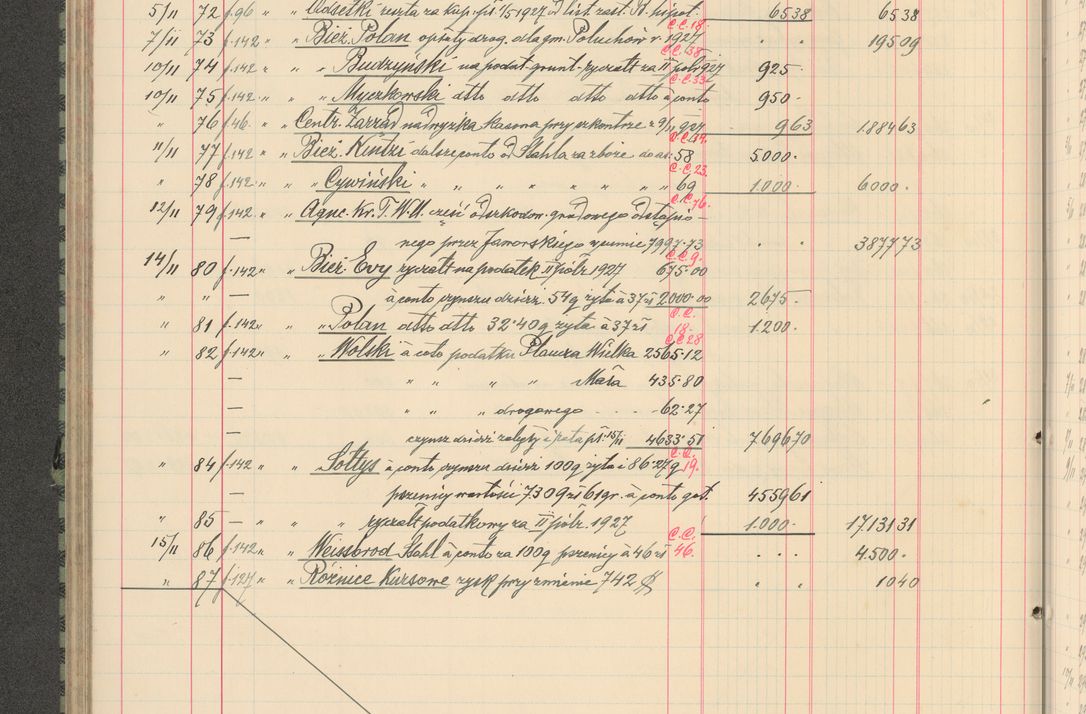 5/11 72 f.96 " " Odsetki reszta za kup. pł. 1/5 1927 od list. zast. B. hipot. 6538 6538
C.C.18.
7/11 73 f.142 " " Bież. Polan opłaty drog. dla gm. Poluchów r 1927 " " 19509
C.C.38.
10/11 74 f.142 " " " Budzyński na podat. grunt. ryczałt za II półr 927 925 -
C.C.33.
10/11 75 f.142 " " " Myczkowski dtto dtto dtto dtto à conto 950 -
" 76 f.46. " " Centr. Zarząd nadwyżka kasowa przy szkontrze z 9/11 927 963 188463
11/11 77 f.142 " " Bież. Kintzi dalsze conto od Stahla za zboże do as. 58 5.000 -
C.C.23.
" 78 f.142 " " " Cywiński " " " " " " " " 69 1.000 - 6000 -
C.C.76.
12/11 79 f.142 " " Agnc. Kr. T.W.U. cześć odszkodow. gradowego odstąpio-
— nego przez Jaworskiego w sumie 7997.73 " " 387773
C.C.9.
14/11 80 f.142 " " Bież. Evy ryczałt na podatek II półr. 1927 675.00
" " — à conto czynszu dzierż. 54 q żyta à 37 zł 2000.00 2675 -
C.C.
" 81 f.142 " " " Polan dtto dtto 32.40 q żyta à 37 zł 18. 1.200 -
C.C.28
" 82 f.142 " " " Wolski à coto podatku Płaucza Wielka 2565.12
— " " " " Mała 435.80
— " " " drogowego - - - - 62.27
— czynsz dzierż. zaległy i rata pł. 15/11 4633.51 769670
C.C.
" 84 f.142 " " Sołtys à conto czynszu dzierż 100 q żyta i 86.27 q 19.
— pszenicy wartości 7309 zł 61 gr. à conto got. 455961
" 85 — " " " ryczałt podatkowy za II półr. 1927 1.000 - 1713131
C.C.
15/11 86 f.142 " " Weissbrod Stahl à conto za 100 q pszenicy à 46 zł 46. - - - 4.500 -
" 87 f.127 " " Różnice Kursowe zysk przy zmianie 742 $ " " 1040